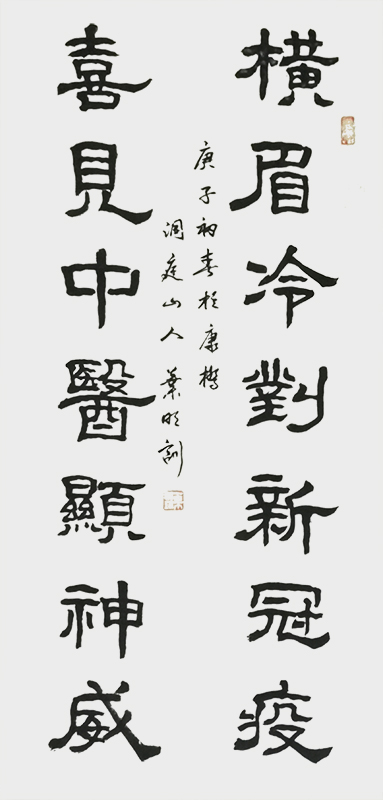 橫眉冷對新冠疫
喜見中醫顯神威
庚子初春於康橋
洞庭山人葉明訓